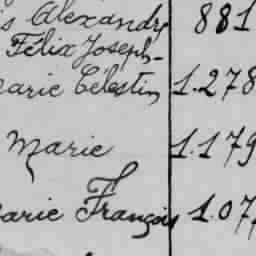 s Alexandre 881
Félix Joseph-
arie Célestin 1.278
Marie 1.179
arie François 1.07